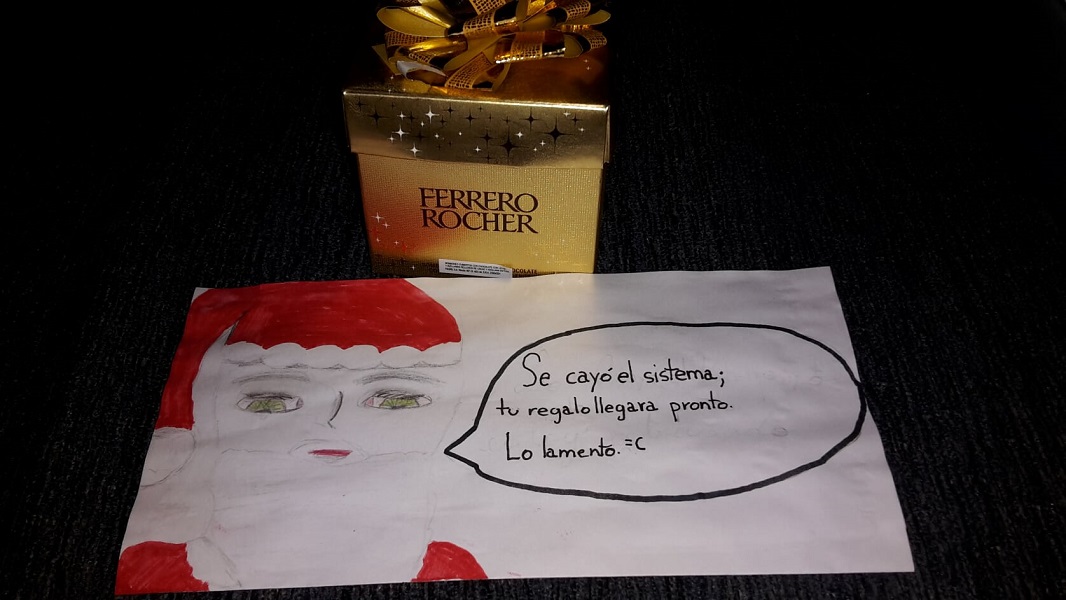 FERRERO
ROCHER
Se cayó el sistema;
tu regalo llegara pronto.
Lo lamento. =C